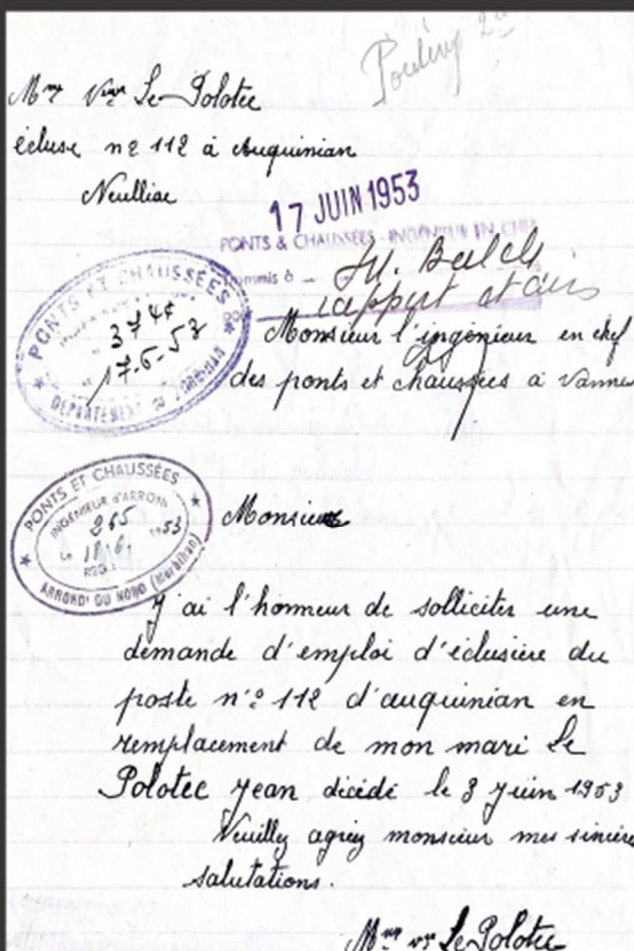 Mme Vve Le Polotec
écluse nº 112 à Auquinian
Neulliac
17 JUIN 1953
PONTS & CHAUSSÉES - INGÉNIEUR EN CHEF
à
M.
rapport et avis
PONTS ET CHAUSSÉES
3746
17-6-53
DEPARTEMENT du MORBIHAN
Monsieur l'ingénieur en chef
des ponts et chaussées à Vannes
PONTS ET CHAUSSÉES
INGÉNIEUR d'ARROND
265
Le 18/6/ 1953
REG.
ARROND' DU NORD (Morbihan)
Monsieur
J'ai l'honneur de solliciter une
demande d'emploi d'éclusière du
poste nº 112 d'auquinian en
remplacement de mon mari Le
Polotec Jean décédé le 3 Juin 1953
Veuillez agréez monsieur mes sincère
salutations.
Mme vve Le Polotec